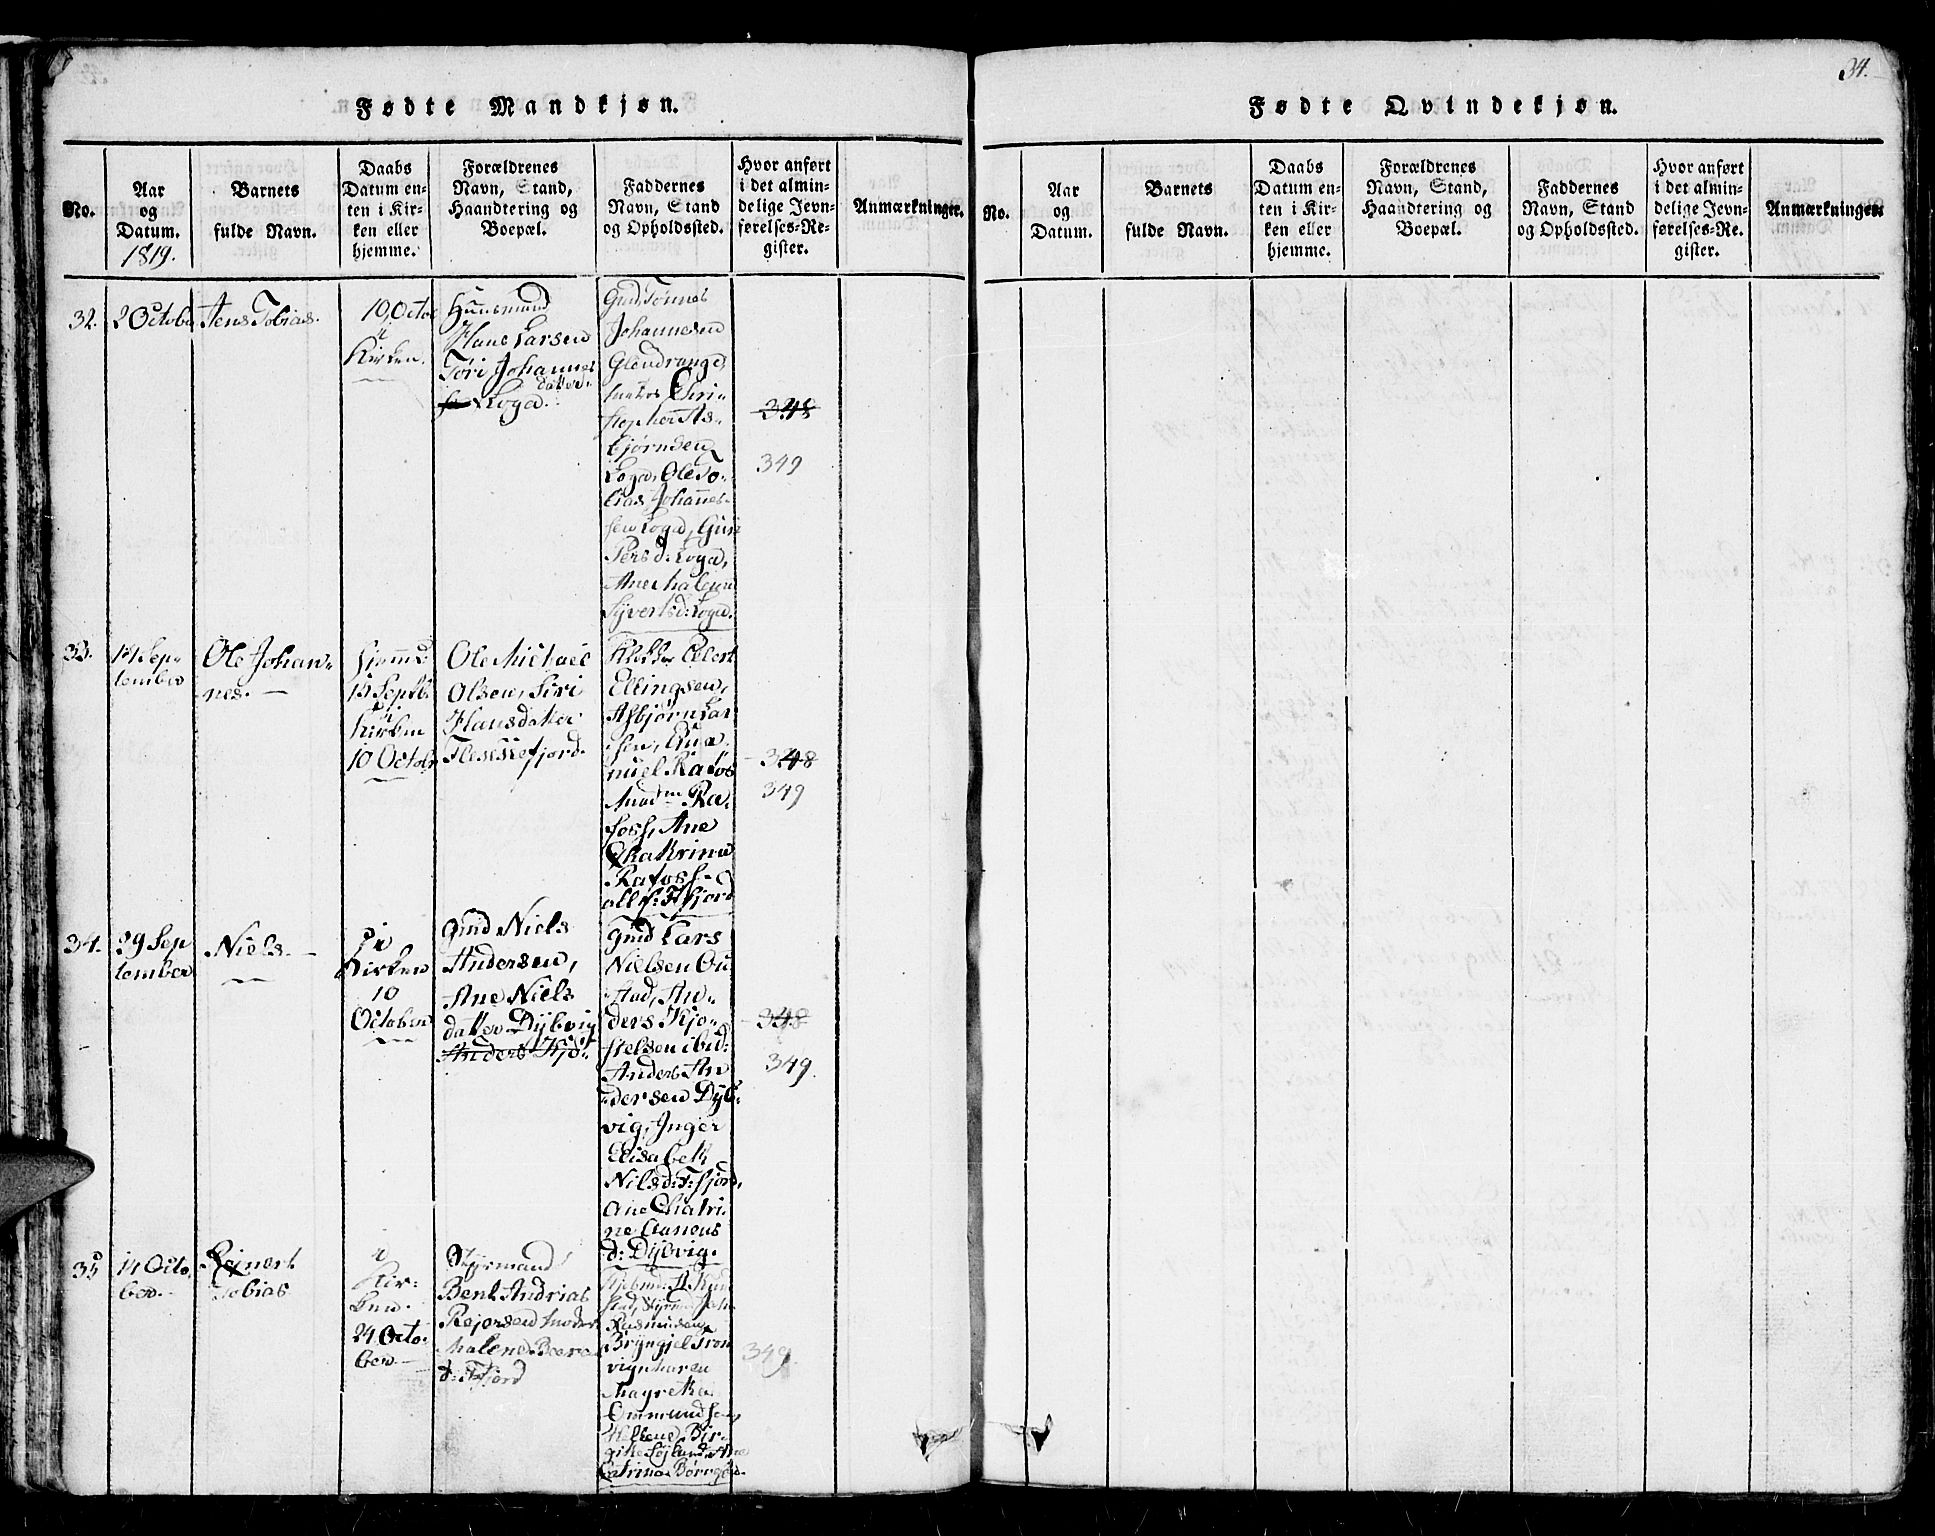 34.
Fødte Mandkjøn.
No.
Aar
og
Datum.
1819.
Barnets
fulde Navn.
Daabs
Datum en-
ten i Kir-
ken eller
hjemme.
Forældrenes
Navn, Stand,
Haandtering og
Boepæl.
Faddernes
Navn, Stand
og Opholdssted.
Hvor anført
i det almin-
delige Jevn-
førelses-Re-
gister.
Anmærkninger.
32.
2 Octobr
Jens Tobias.
10 Octob
i
Kirken.
Huusmand
Hans Larsen
Tori Johannes
datter
Loga.
Gmd Tønnes
Johannesen
Glendrange,
Chri-
stopher As-
bjørnsen
Loga, Ole To-
bias Johannes-
sen Loga, Guri
Pers d: Loga,
Ane Malene
Syverts d: Loga.
348
349
33.
14 Sep-
tember
Ole Johan-
nes.
hjemme
15 Septbr
i
Kirken
10 Octobr
Ole Michael
Olsen, Siri
Hansdatter
Flekkefjord.
Eilert
Ellingsen,
Asbjørn Lar
sen, Ema-
nuel Rafos
Mad^m Ra-
foss, Ane
Chatrine
Rafoss
all f: Ffjord
348
349
34.
29 Sep
tember
Niels.
i
Kirken
10
October
Gmd Niels
Andersen,
Ane Niels
datter Dybvig
Anders Kjø-
Gmd Lars
Nielsen Ou
stad, An-
ders Kjø-
stelsen ibid:
Anders An
dersen Dyb-
vig, Inger
Elisabeth
Nilsd: F: fjord,
Ane Chatri-
ne Aanens
d: Dybvig.
348
349.
35
14 Octo
ber.
Rejnert
Tobias
i
Kir-
ken.
24 Octo-
ber
Styrmand
Bent Andrias
Rejersen
Malene Beer
d: Ffjord
Styrmd: Joh
Rasmusen
Bryngjel Tron
vig
Ommundsen,
Hellene Bir-
gitte
Catrine
349
Fødte Qvindekjøn.
No.
Aar
og
Datum.
Barnets
fulde Navn.
Daabs
Datum en-
ten i Kir-
ken eller
hjemme.
Forældrenes
Navn, Stand,
Haandtering og
Boepæl.
Faddernes
Navn, Stand
og Opholdssted.
Hvor anført
i det almin-
delige Jevn-
førelses-Re-
gister.
Anmærkninger.